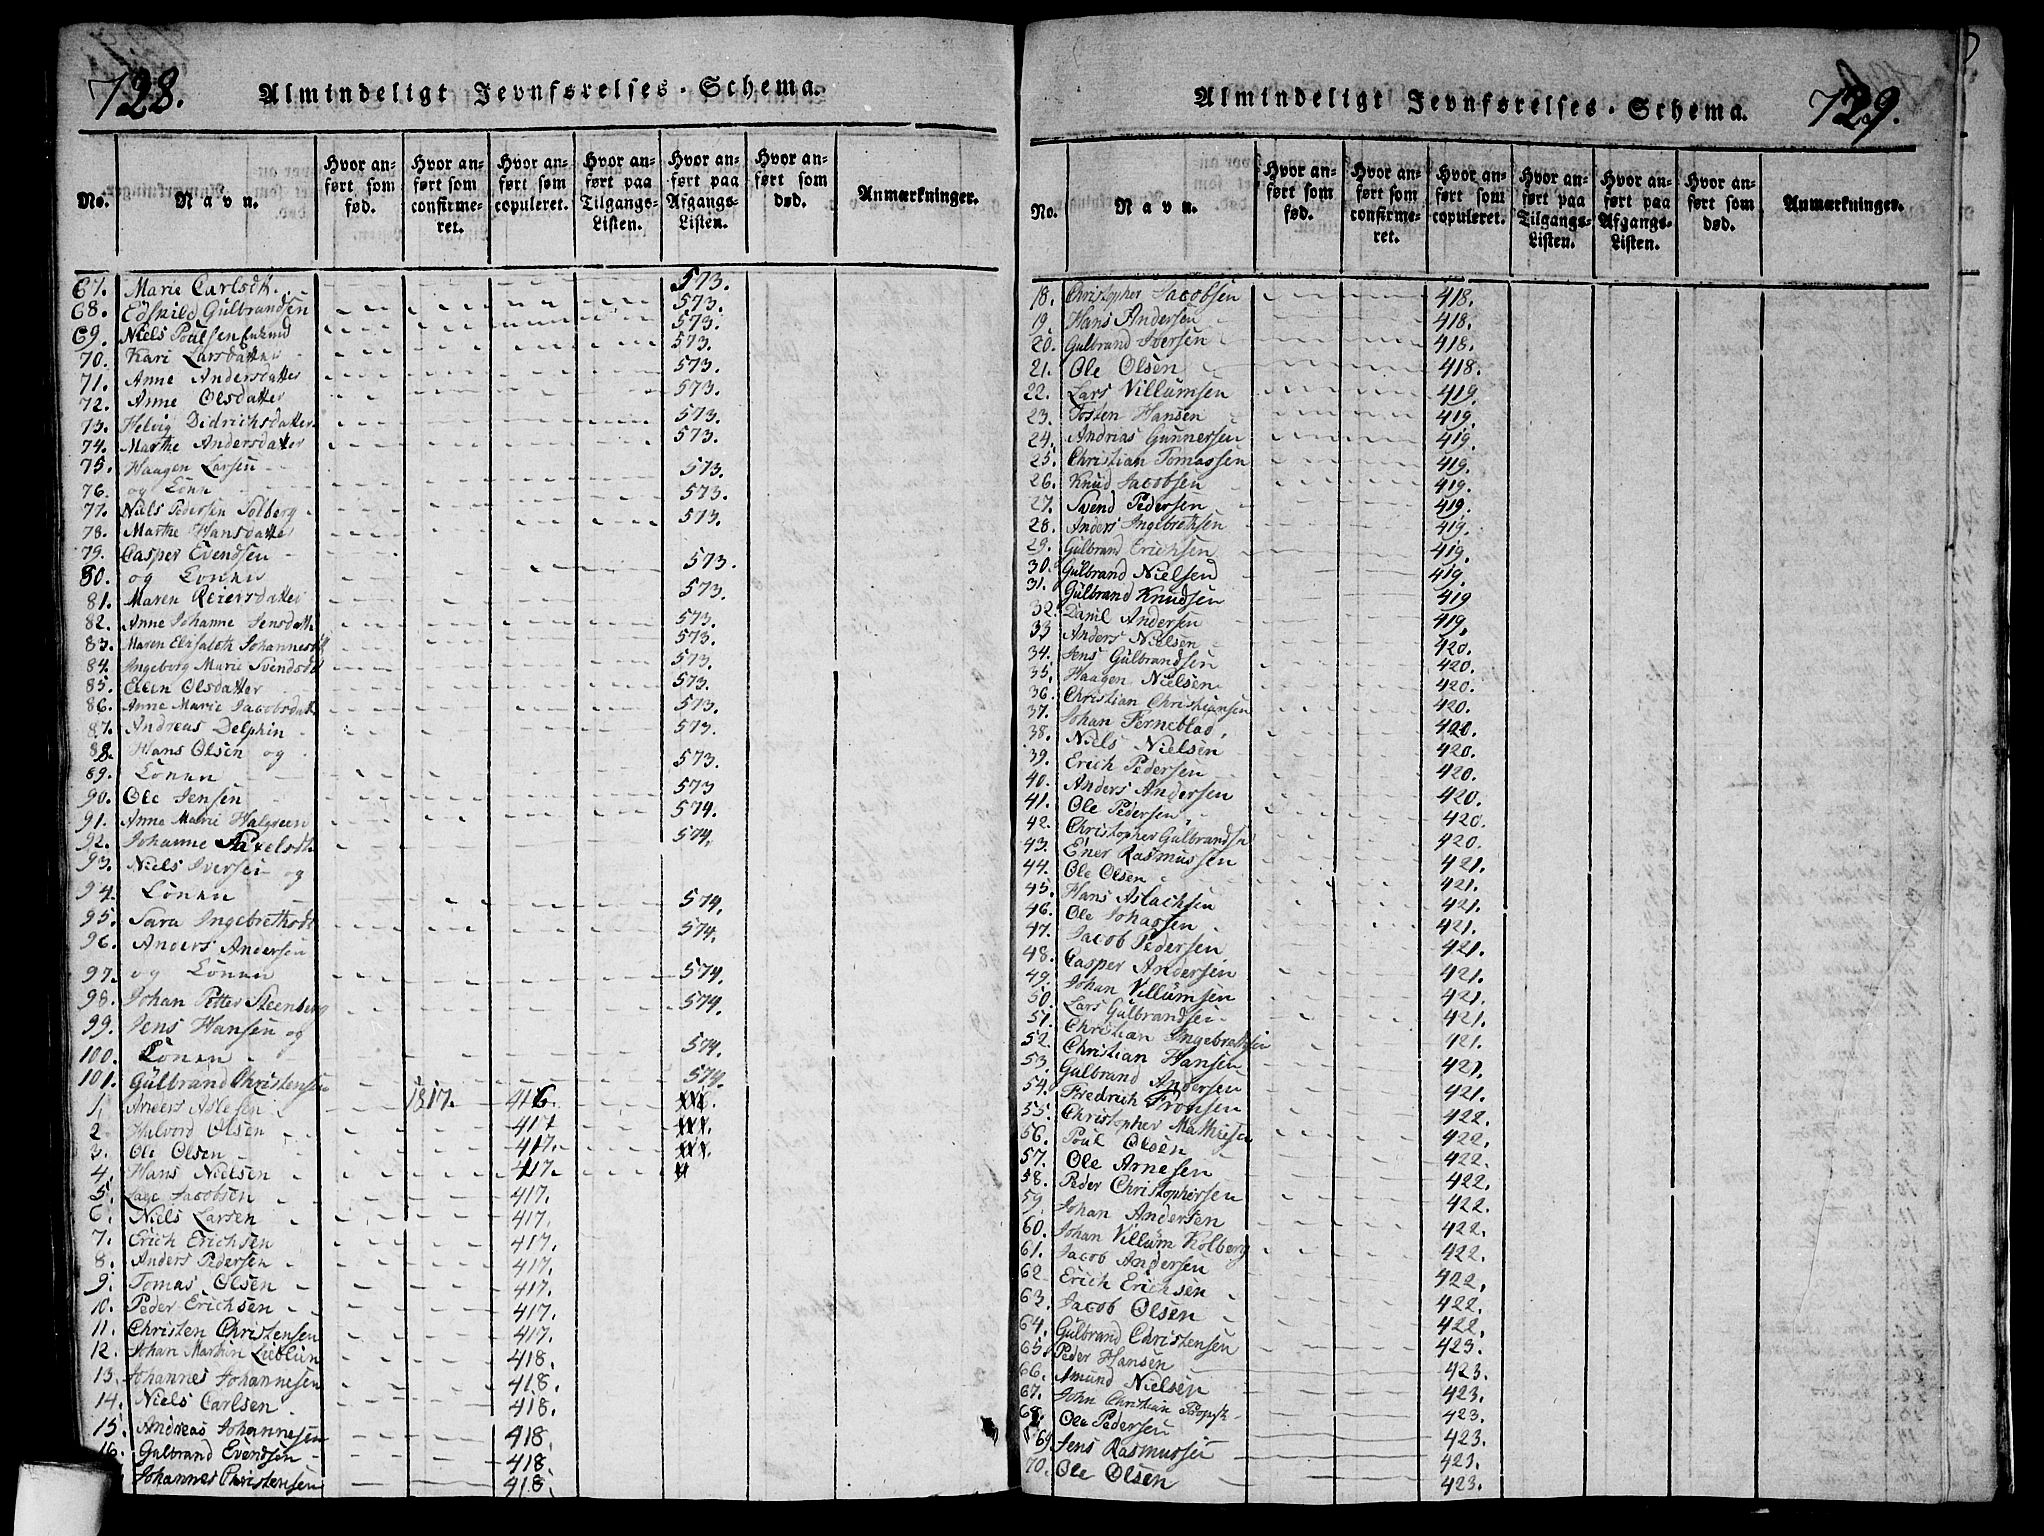 728.
Almindeligt Jevnførelses-Schema.
No. Navn. Hvor anført som fød. Hvor anført som confirmeret. Hvor anført som copuleret. Hvor anført paa Tilgangs-Listen. Hvor anført paa Afgangs-Listen. Hvor anført som død. Anmærkninger.
67. Marie Carlsdt. 573.
68. Edskild Gulbrandsen 573.
69. Niels Poulsen 573.
70. Kari Larsdatter 573.
71. Anne Andersdatter 573.
72. Anne Olsdatter 573.
73. Helvig Didrichsdatter 573.
74. Marthe Andersdatter 573.
75. Haagen Larsen
76. og Konen 573.
77. Niels Pedersen Solberg 573.
78. Marthe Hansdatter 573.
79. Casper Evendsen
80. og Konen 573.
81. Maren Reiersdatter 573.
82. Anne Johanne Jensdatt 573.
83. Maren Elisabeth Johannesdt 573.
84. Ingeborg Marie Svendsdt 573.
85. Elein Olsdatter 573.
86. Anne Marie Jacobsdatt 573.
87. Andreas Delphin 573.
88. Hans Olsen og
89. Konen 573.
90. Ole Jensen 573
91. Anne Marie Halgreen 574.
92. Johanne Paxelsdt. 574.
93. Niels Iversen og
94. Konen 574.
95. Sara Ingebrethsdt 574.
96. Anders Andersen
97. og Konen 574.
98. Johan Petter Steenberg 574.
99. Jens Hansen og
100. Konen 574.
101. Gulbrand Christensen 574.
1. Anders Aslesen 1817. 416.
2. Halvord Olsen 417
3. Ole Olsen 417.
4. Hans Nielsen 417.
5. Lage Jacobsen 417.
6. Niels Larsen 417.
7. Erich Erichsen 417.
8. Anders Pedersen 417.
9. Tomas Olsen 417.
10. Peder Erichsen 417.
11. Christen Christensen 417.
12. Johan Martin Lieblun 418.
13. Johannes Johannesen 418.
14. Niels Carlsen 418.
15. Andreas Johannesen 418.
16. Gulbrand Evendsen 418
Johannes Christensen 418.
729.
Almindeligt Jevnførelses-Schema.
No. Navn. Hvor anført som fød. Hvor anført som confirmeret. Hvor anført som copuleret. Hvor anført paa Tilgangs-Listen. Hvor anført paa Afgangs-Listen. Hvor anført som død. Anmærkninger.
18. Christopher Jacobsen 418.
19. Hans Andersen 418.
20. Gulbrand Iversen 418.
21. Ole Olsen 418.
22. Lars Villumsen 419.
23. Tosten Hansen 419.
24. Andrias Gunnersen 419.
25. Christian Tomassen 419.
26. Knud Jacobsen 419.
27. Svend Pedersen 419.
28. Anders Ingebrethsen 419.
29. Gulbrand Erichsen 419.
30. Gulbrand Nielsen 419.
31. Gulbrand Knudsen 419
32. Danil Andersen 419.
33 Anders Nielsen 420.
34. Jens Gulbrandsen 420.
35. Haagen Nielsen 420.
36. Christian Christiansen 420.
37. Johan Ferneblad 420.
38. Niels Nielsen 420.
39. Erich Pedersen 420.
40. Anders Andersen 420.
41. Ole Pedersen 420.
42. Christopher Gulbrandsen 420.
43. Ener Rasmussen 421.
44. Ole Olsen 421.
45. Hans Aslachsen 421.
46. Ole Johansen 421.
47. Jacob Pedersen 421.
48. Casper Andersen 421.
49. Johan Villumsen 421.
50. Lars Gulbrandsen 421.
51. Christian Ingebrethsen 421.
52. Christian Hansen 421.
53. Gulbrand Andersen 421.
54. Fredrich Fronsen 422.
55. Christopher Mathiesen 422.
56. Poul Olsen 422.
57. Ole Arnesen 422.
58. Peder Christophersen 422.
59. Johan Andersen 422.
60. Johan Villum Kolberg 422.
61. Jacob Andersen 422.
62 Erich Erichsen 422.
63. Jacob Olsen 422.
64. Gulbrand Christensen 423.
65. Peder Hansen 423.
66. Amund Nielsen 423.
67. John Christian 423.
68. Ole Pedersen 423.
69 Jens Rasmussen 423.
70. Ole Olsen 423.